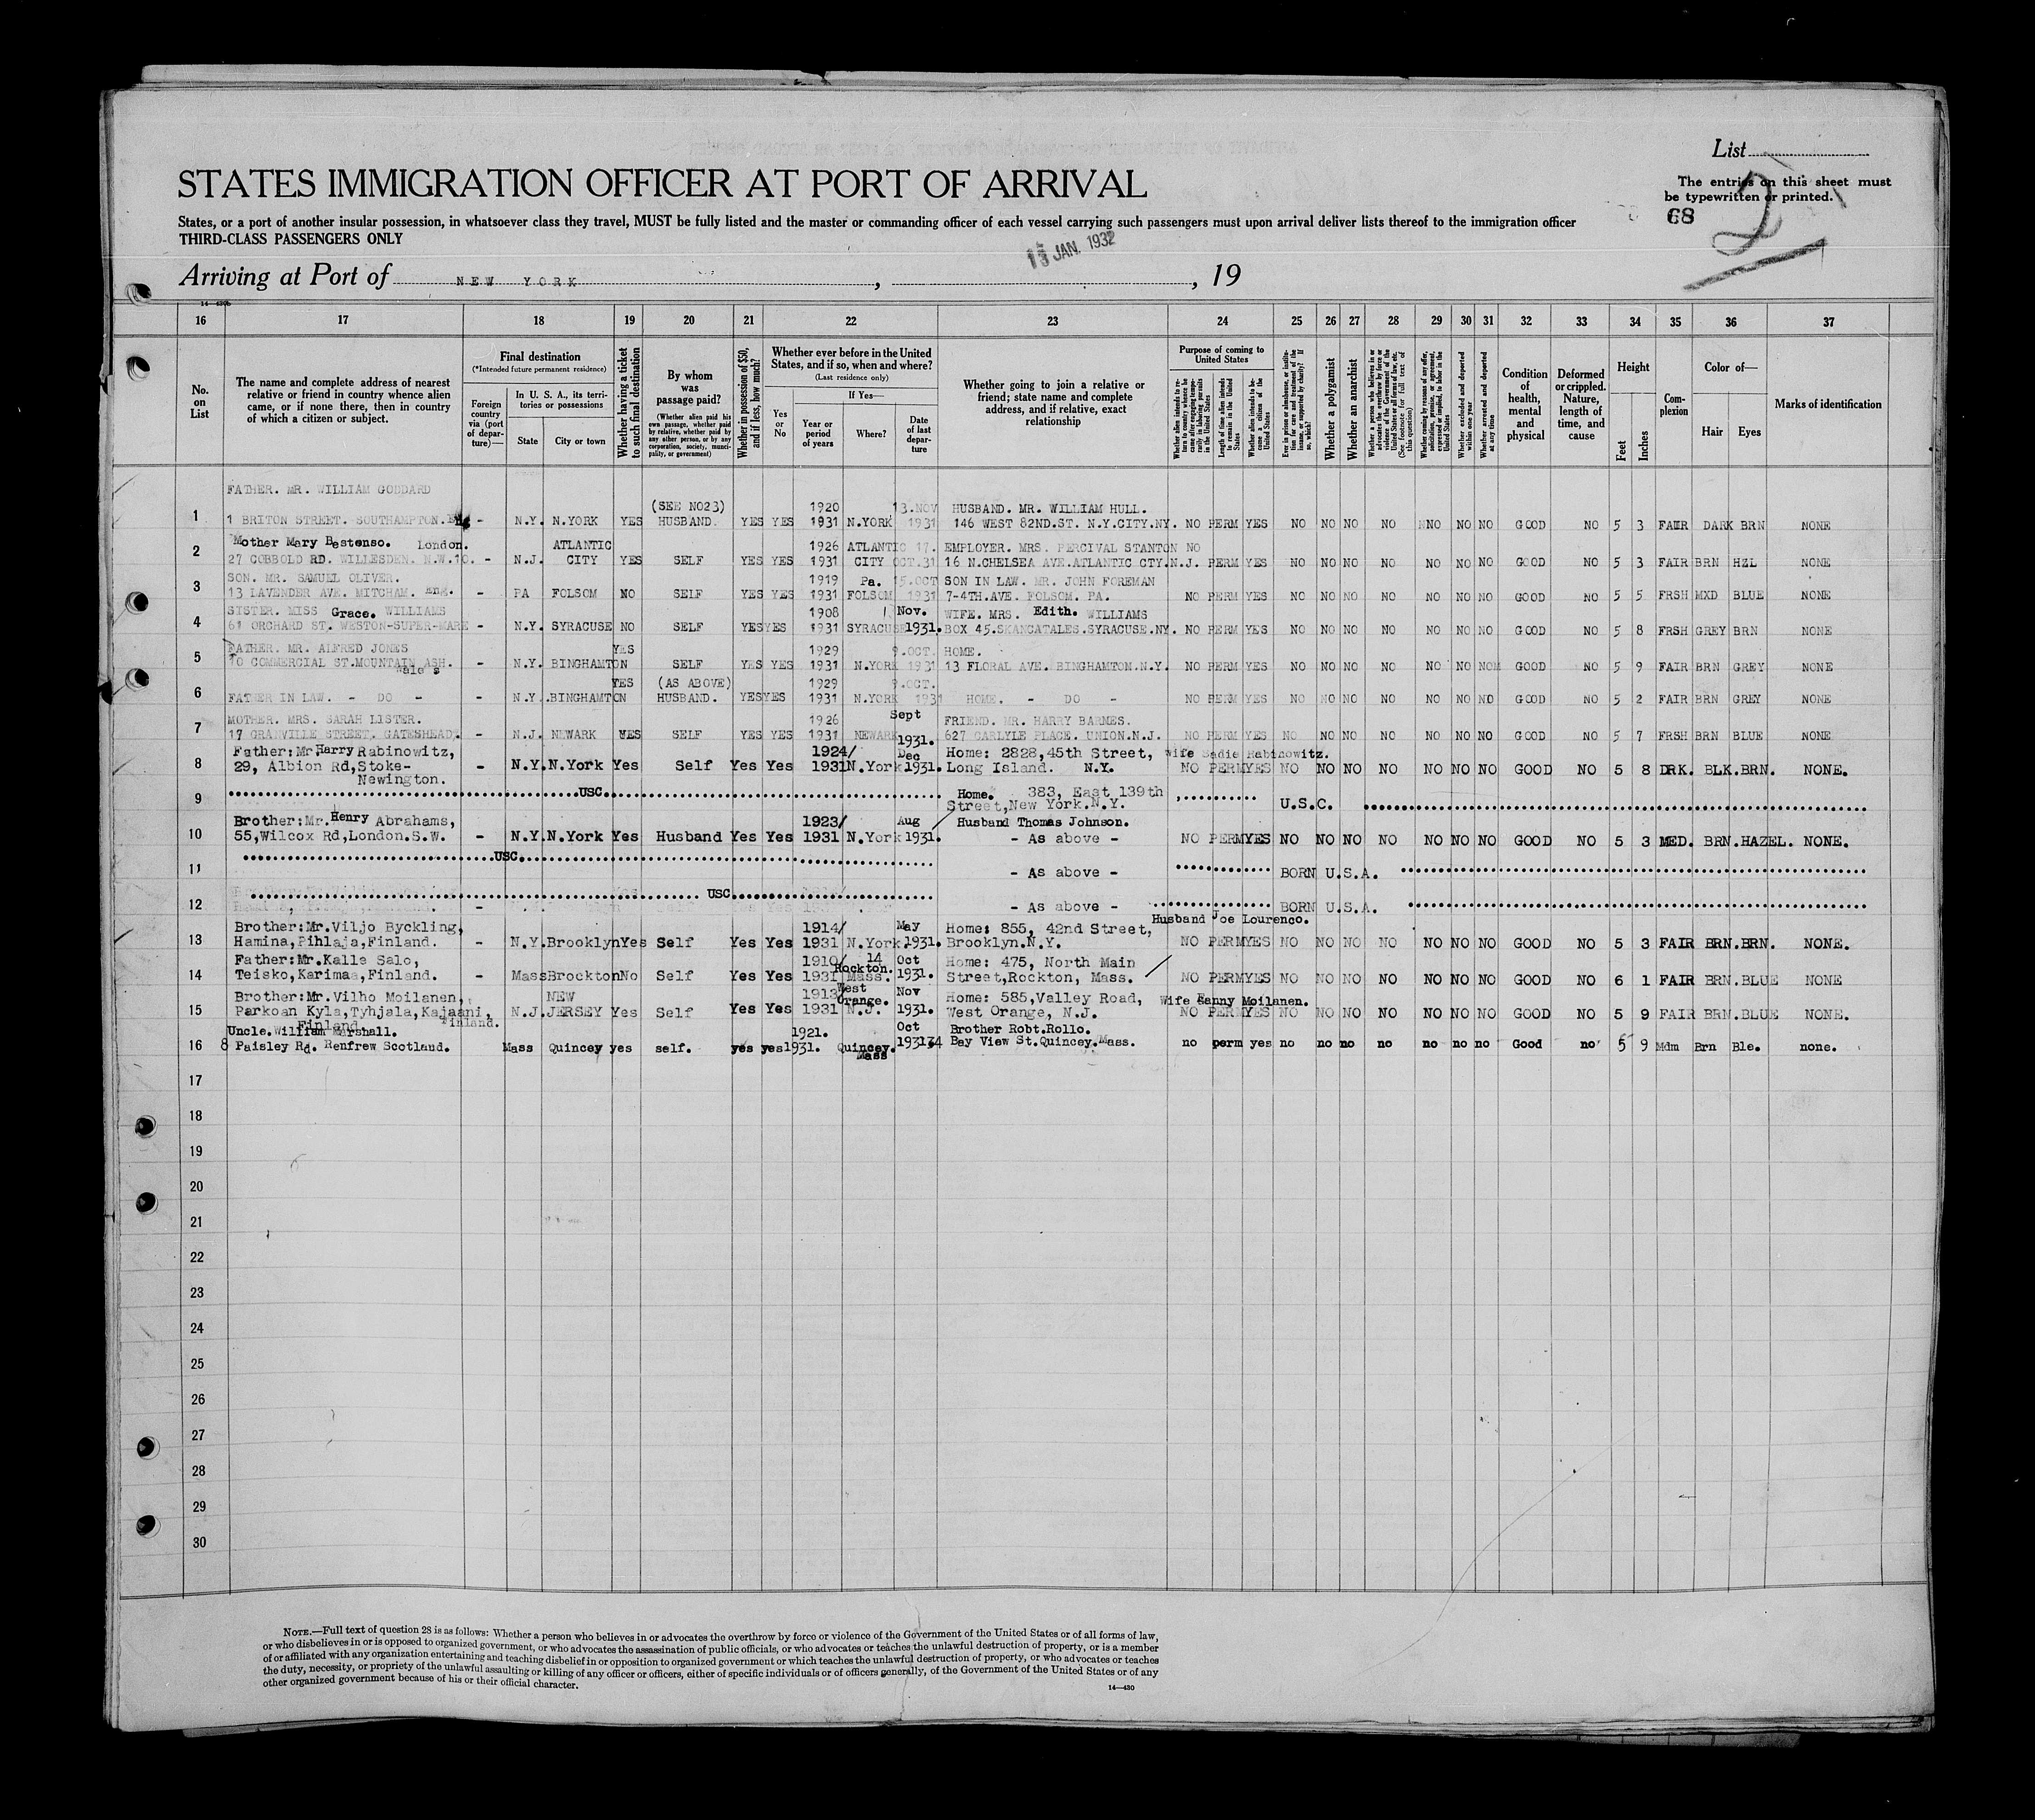 List
STATES IMMIGRATION OFFICER AT PORT OF ARRIVAL
The entries on this sheet must
be typewritten or printed.
68
2
States, or a port of another insular possession, in whatsoever class they travel, MUST be fully listed and the master or commanding officer of each vessel carrying such passengers must upon arrival deliver lists thereof to the immigration officer
THIRD-CLASS PASSENGERS ONLY
JAN. 1932
Arriving at Port of NEW YORK, , 19
16 17 18 19 20 21 22 23 24 25 26 27 28 29 30 31 32 33 34 35 36 37
No. on List
The name and complete address of nearest relative or friend in country whence alien came, or if none there, then in country of which a citizen or subject.
Final destination
(*Intended future permanent residence)
Foreign country via (port of departure)—
In U. S. A., its territories or possessions
State
City or town
Whether having a ticket to such final destination
By whom was passage paid?
(Whether alien paid his own passage, whether paid by relative, whether paid by any other person, or by any corporation, society, municipality, or government)
Whether in possession of $50, and if less, how much?
Whether ever before in the United States, and if so, when and where?
(Last residence only)
Yes or No
If Yes—
Year or period of years
Where?
Date of last departure
Whether going to join a relative or friend; state name and complete address, and if relative, exact relationship
Purpose of coming to United States
Whether alien intends to return to country whence he came after engaging temporarily in laboring pursuits in the United States
Length of time alien intends to remain in the United States
Whether alien intends to become a citizen of the United States
Ever in prison or almshouse, or institution for care and treatment of the insane, or supported by charity? If so, which?
Whether a polygamist
Whether an anarchist
Whether a person who believes in or advocates the overthrow by force or violence of the Government of the United States or all forms of law, etc. (See footnote for full text of this question)
Whether coming by reasons of any offer, solicitation, promise, or agreement, expressed or implied, to labor in the United States
Whether excluded and deported within one year
Whether arrested and deported at any time
Condition of health, mental and physical
Deformed or crippled. Nature, length of time, and cause
Height
Feet
Inches
Complexion
Color of—
Hair
Eyes
Marks of identification
FATHER. MR. WILLIAM GODDARD
(SEE NO23) 1920 13.NOV HUSBAND. MR. WILLIAM HULL.
1 1 BRITON STREET. SOUTHAMPTON. - N.Y. N.YORK YES HUSBAND. YES YES 1931 N.YORK 1931 146 WEST 82ND.ST. N.Y.CITY.NY. NO PERM YES NO NO NO NO NO NO NO GOOD NO 5 3 FAIR DARK BRN NONE
Mother Mary Bestenso. London. ATLANTIC 1926 ATLANTIC 17. EMPLOYER. MRS. PERCIVAL STANTON NO
2 27 COBBOLD RD. WILLESDEN. N.W.10. - N.J. CITY YES SELF YES YES 1931 CITY OCT.31 16 N.CHELSEA AVE.ATLANTIC CTY.N.J. PERM YES NO NO NO NO NO NO NO GOOD NO 5 3 FAIR BRN HZL NONE
SON. MR. SAMUEL OLIVER. 1919 Pa. 15.OCT SON IN LAW. MR. JOHN FOREMAN
3 13 LAVENDER AVE. MITCHAM. Eng. - PA FOLSOM NO SELF YES YES 1931 FOLSOM 1931 7-4TH.AVE. FOLSOM. PA. NO PERM YES NO NO NO NO NO NO NO GOOD NO 5 5 FRSH MXD BLUE NONE
SISTER. MISS Grace. WILLIAMS 1908 Nov. WIFE. MRS. Edith. WILLIAMS
4 61 ORCHARD ST. WESTON-SUPER-MARE - N.Y. SYRACUSE NO SELF YES YES 1931 SYRACUSE 1931. BOX 45.SKANCATALES.SYRACUSE.NY. NO PERM YES NO NO NO NO NO NO NO GOOD NO 5 8 FRSH GREY BRN NONE
FATHER. MR. ALFRED JONES YES 1929 9.OCT. HOME.
5 10 COMMERCIAL ST.MOUNTAIN ASH. - N.Y. BINGHAMTON SELF YES YES 1931 N.YORK 1931 13 FLORAL AVE. BINGHAMTON.N.Y. NO PERM YES NO NO NO NO NO NO NO GOOD NO 5 9 FAIR BRN GREY NONE
Wales
YES (AS ABOVE) 1929 9.OCT.
6 FATHER IN LAW. - DO - - N.Y. BINGHAMTON HUSBAND. YES YES 1931 N.YORK 1931 HOME. - DO - NO PERM YES NO NO NO NO NO NO NO GOOD NO 5 2 FAIR BRN GREY NONE
MOTHER. MRS. SARAH LISTER. 1926 Sept FRIEND. MR. HARRY BARMES.
7 17 GRANVILLE STREET. GATESHEAD. - N.J. NEWARK YES SELF YES YES 1931 NEWARK 1931. 627 CARLYLE PLACE. UNION.N.J. NO PERM YES NO NO NO NO NO NO NO GOOD NO 5 7 FRSH BRN BLUE NONE
Father:Mr.Harry Rabinowitz, 1924/ Dec Home: 2828,45th Street, Wife Sadie Rabinowitz.
8 29, Albion Rd,Stoke- - N.Y. N.York Yes Self Yes Yes 1931 N.York 1931. Long Island. N.Y. NO PERM YES NO NO NO NO NO NO NO GOOD NO 5 8 DRK. BLK. BRN. NONE.
Newington.
9 USC. Home. 383, East 139th Street,New York.N.Y. U.S.C.
Brother:Mr.Henry Abrahams, 1923/ Aug Husband Thomas Johnson.
10 55,Wilcox Rd,London.S.W. - N.Y. N.York Yes Husband Yes Yes 1931 N.York 1931. - As above - NO PERM YES NO NO NO NO NO NO NO GOOD NO 5 3 MED. BRN. HAZEL. NONE.
11 USC. - As above - BORN U.S.A.
12 USC. - As above - BORN U.S.A.
Husband Joe Lourenco.
Brother:Mr.Viljo Byckling, 1914/ May Home: 855, 42nd Street,
13 Hamina,Pihlaja,Finland. - N.Y. Brooklyn Yes Self Yes Yes 1931 N.York 1931. Brooklyn.N.Y. NO PERM YES NO NO NO NO NO NO NO GOOD NO 5 3 FAIR BRN. BRN. NONE.
Father:Mr.Kalle Salo, 1910/ 14 Oct Home: 475, North Main
14 Teisko,Karimaa,Finland. - Mass Brockton No Self Yes Yes 1931 Rockton. Mass. 1931. Street,Rockton, Mass. NO PERM YES NO NO NO NO NO NO NO GOOD NO 6 1 FAIR BRN. BLUE NONE
Brother:Mr.Vilho Moilanen, NEW 1913 West Orange. Nov Home: 585,Valley Road, Wife Hanny Moilanen.
15 Parkoan Kyla,Tyhjala,Kajaani, N.J. JERSEY Yes Self Yes Yes 1931 N.J. 1931. West Orange, N.J. NO PERM YES NO NO NO NO NO NO NO GOOD NO 5 9 FAIR BRN. BLUE NONE.
Finland. Finland.
Uncle.William Marshall. 1921. Oct Brother Robt.Rollo.
16 8 Paisley Rd. Renfrew Scotland. Mass Quincey yes self. yes yes 1931. Quincey. Mass 1931 74 Bay View St.Quincey.Mass. no perm yes no no no no no no no Good no 5 9 Mdm Brn Ble. none.
17
18
19
20
21
22
23
24
25
26
27
28
29
30
NOTE.—Full text of question 28 is as follows: Whether a person who believes in or advocates the overthrow by force or violence of the Government of the United States or of all forms of law,
or who disbelieves in or is opposed to organized government, or who advocates the assassination of public officials, or who advocates or teaches the unlawful destruction of property, or is a member
of or affiliated with any organization entertaining and teaching disbelief in or opposition to organized government or which teaches the unlawful destruction of property, or who advocates or teaches
the duty, necessity, or propriety of the unlawful assaulting or killing of any officer or officers, either of specific individuals or of officers generally, of the Government of the United States or of any
other organized government because of his or their official character.
14—430